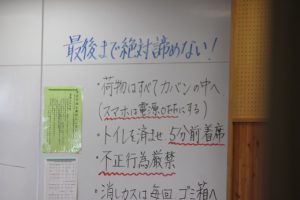 最後まで絶対諦めない!
・荷物はすべてカバンの中へ
(スマホは電源OFFにする)
・トイレを済ませ 5分前着席
・不正行為厳禁
・消しカスは毎回 ゴミ箱へ